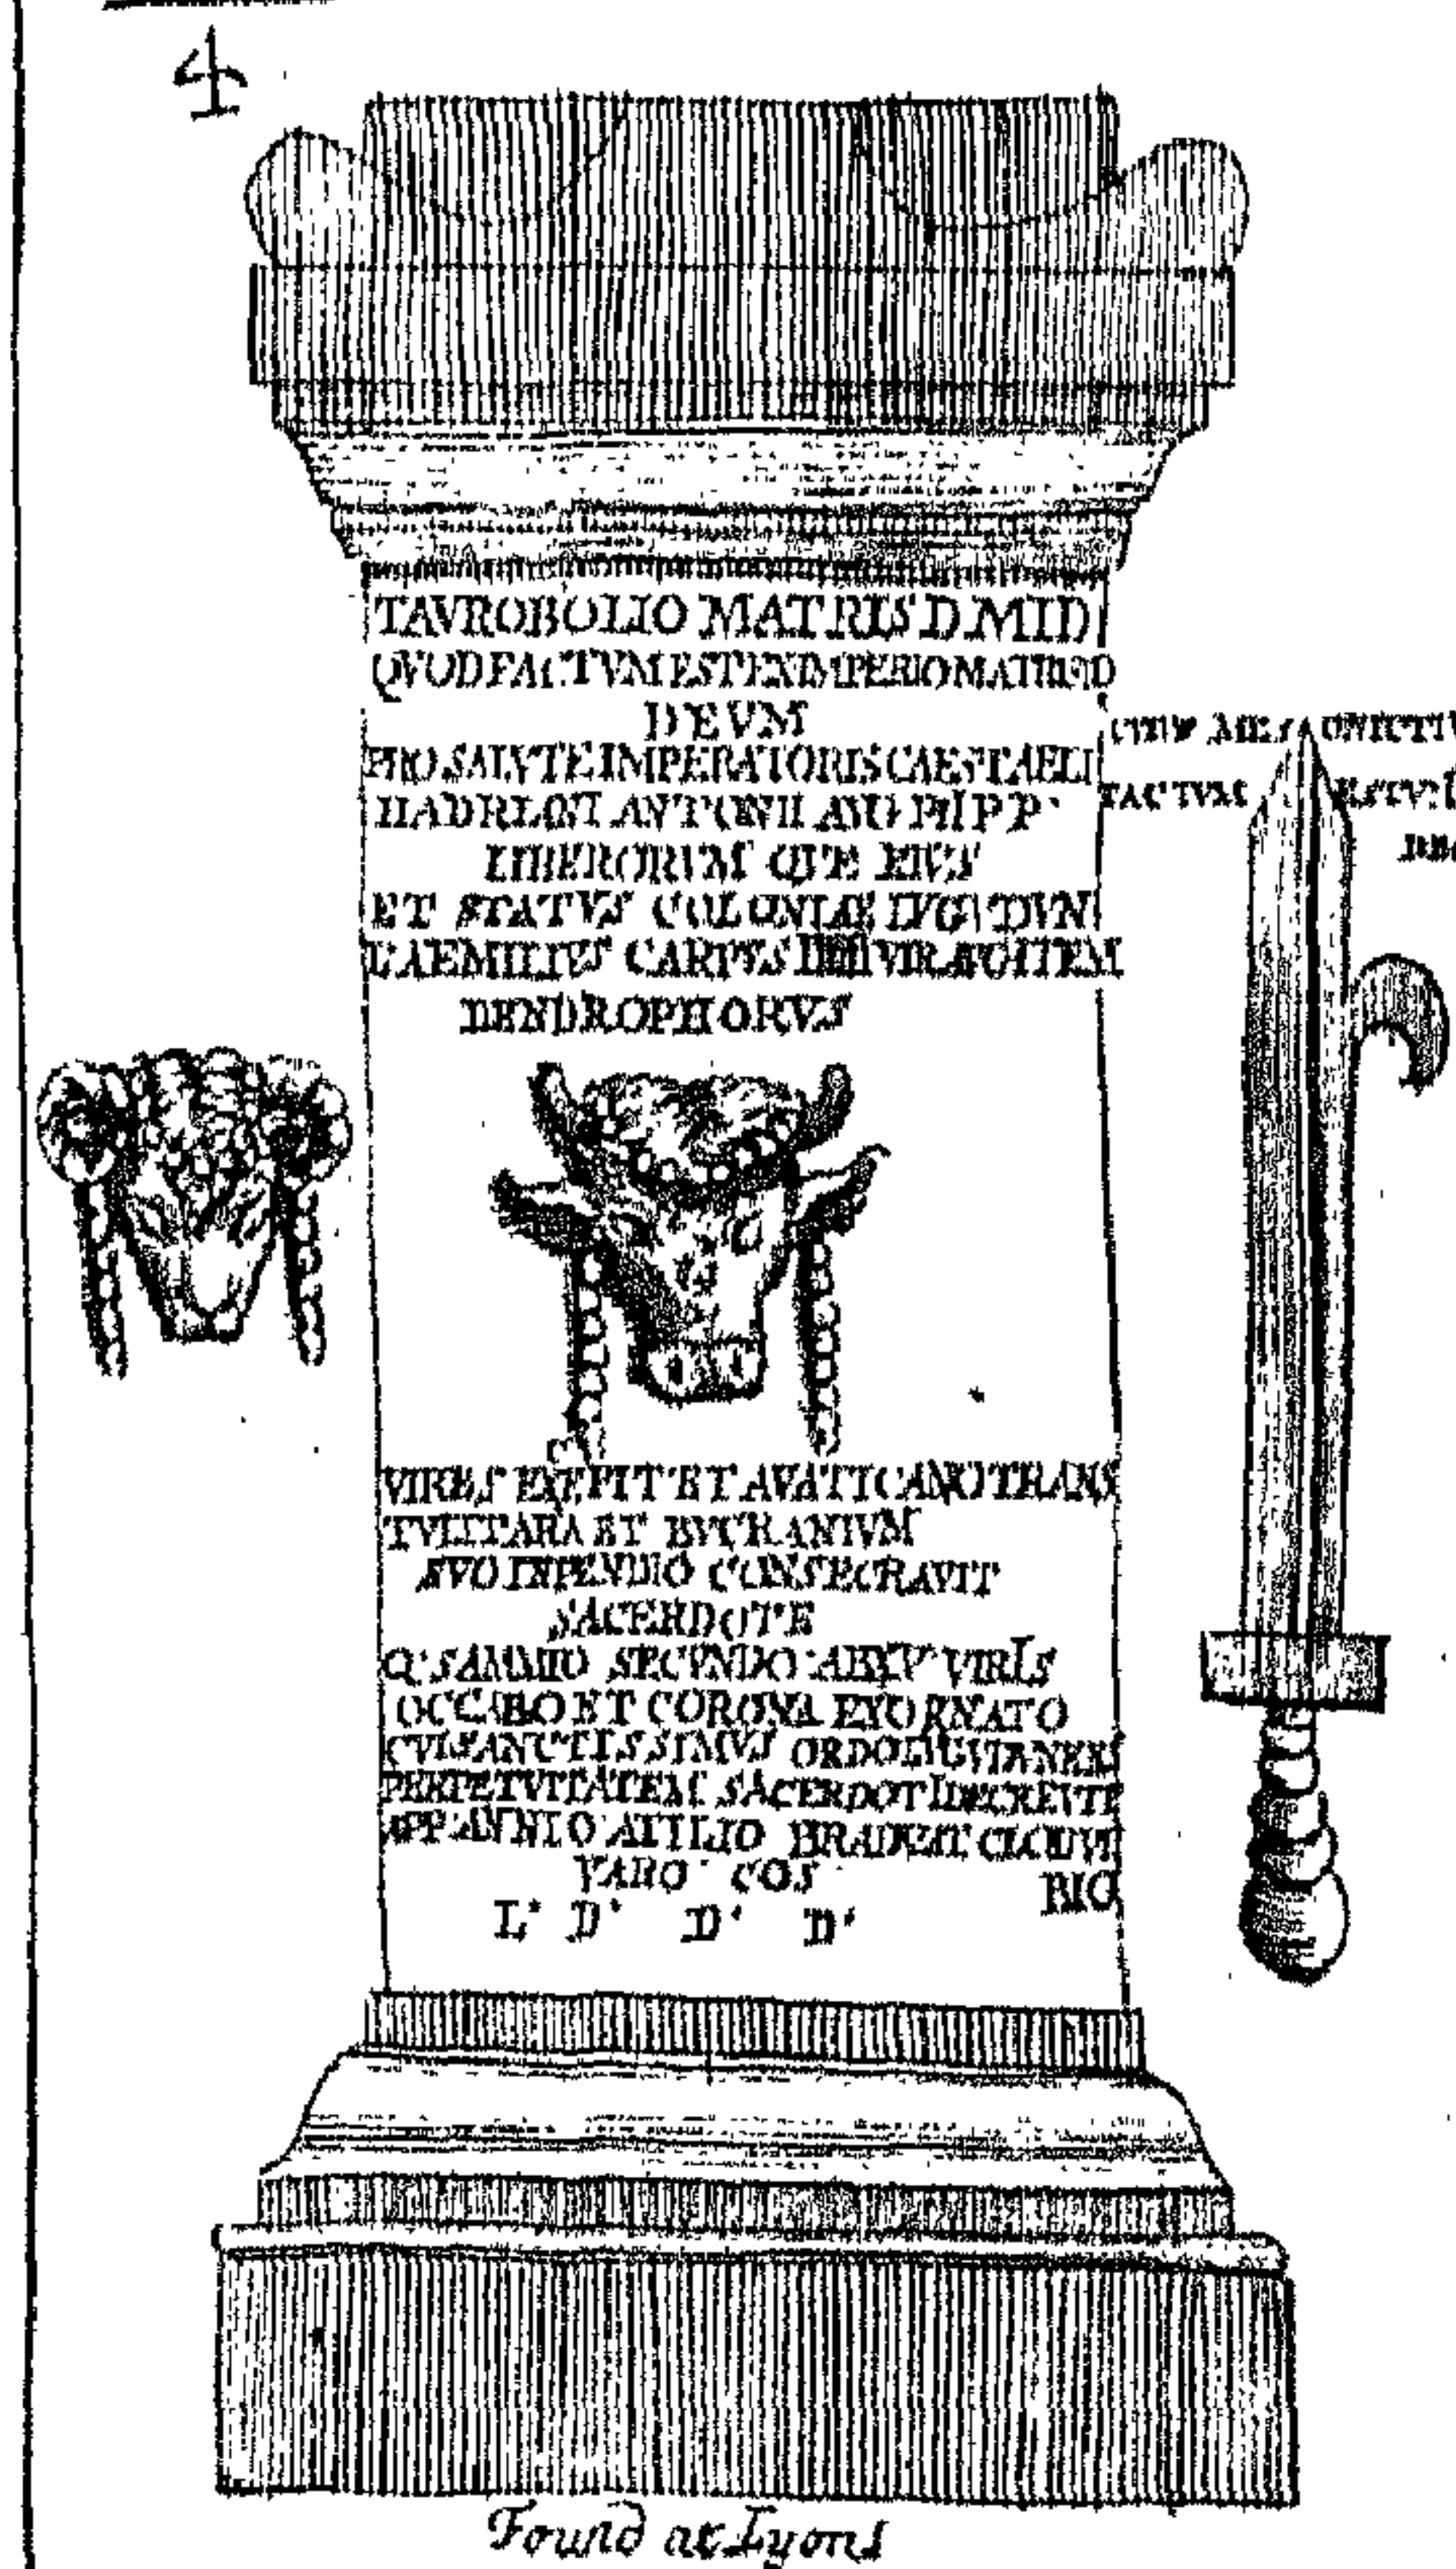 4
TAVROBOLIO MATRIS D M I D
QVOD FACTVM EST EX IMPERIO MATRIS D
DEVM
PRO SALVTE IMPERATORIS CAES T AELI
HADRIANI ANTONINI AVG PII P P
LIBERORVM QVE EIVS
ET STATVS COLONIAE LVGVDVN
L AEMILIVS CARPVS IIIIIIVIR AVG ITEM
DENDROPHORVS
VIRES EXCEPIT ET A VATICANO TRANS
TVLIT ARA ET BVCRANIVM
SVO INPENDIO CONSECRAVIT
SACERDOTE
Q SAMMIO SECVNDO AB XV VIRIS
OCCABO ET CORONA EXORNATO
CVI SANCTISSIMVS ORDO
PERPETVITATEM SACERDOTI DECREVIT
APP ANNIO ATILIO BRADVA T CLOD VI
BIO
VARO COS
L D D D
FACTVM EST
Found at Lyons